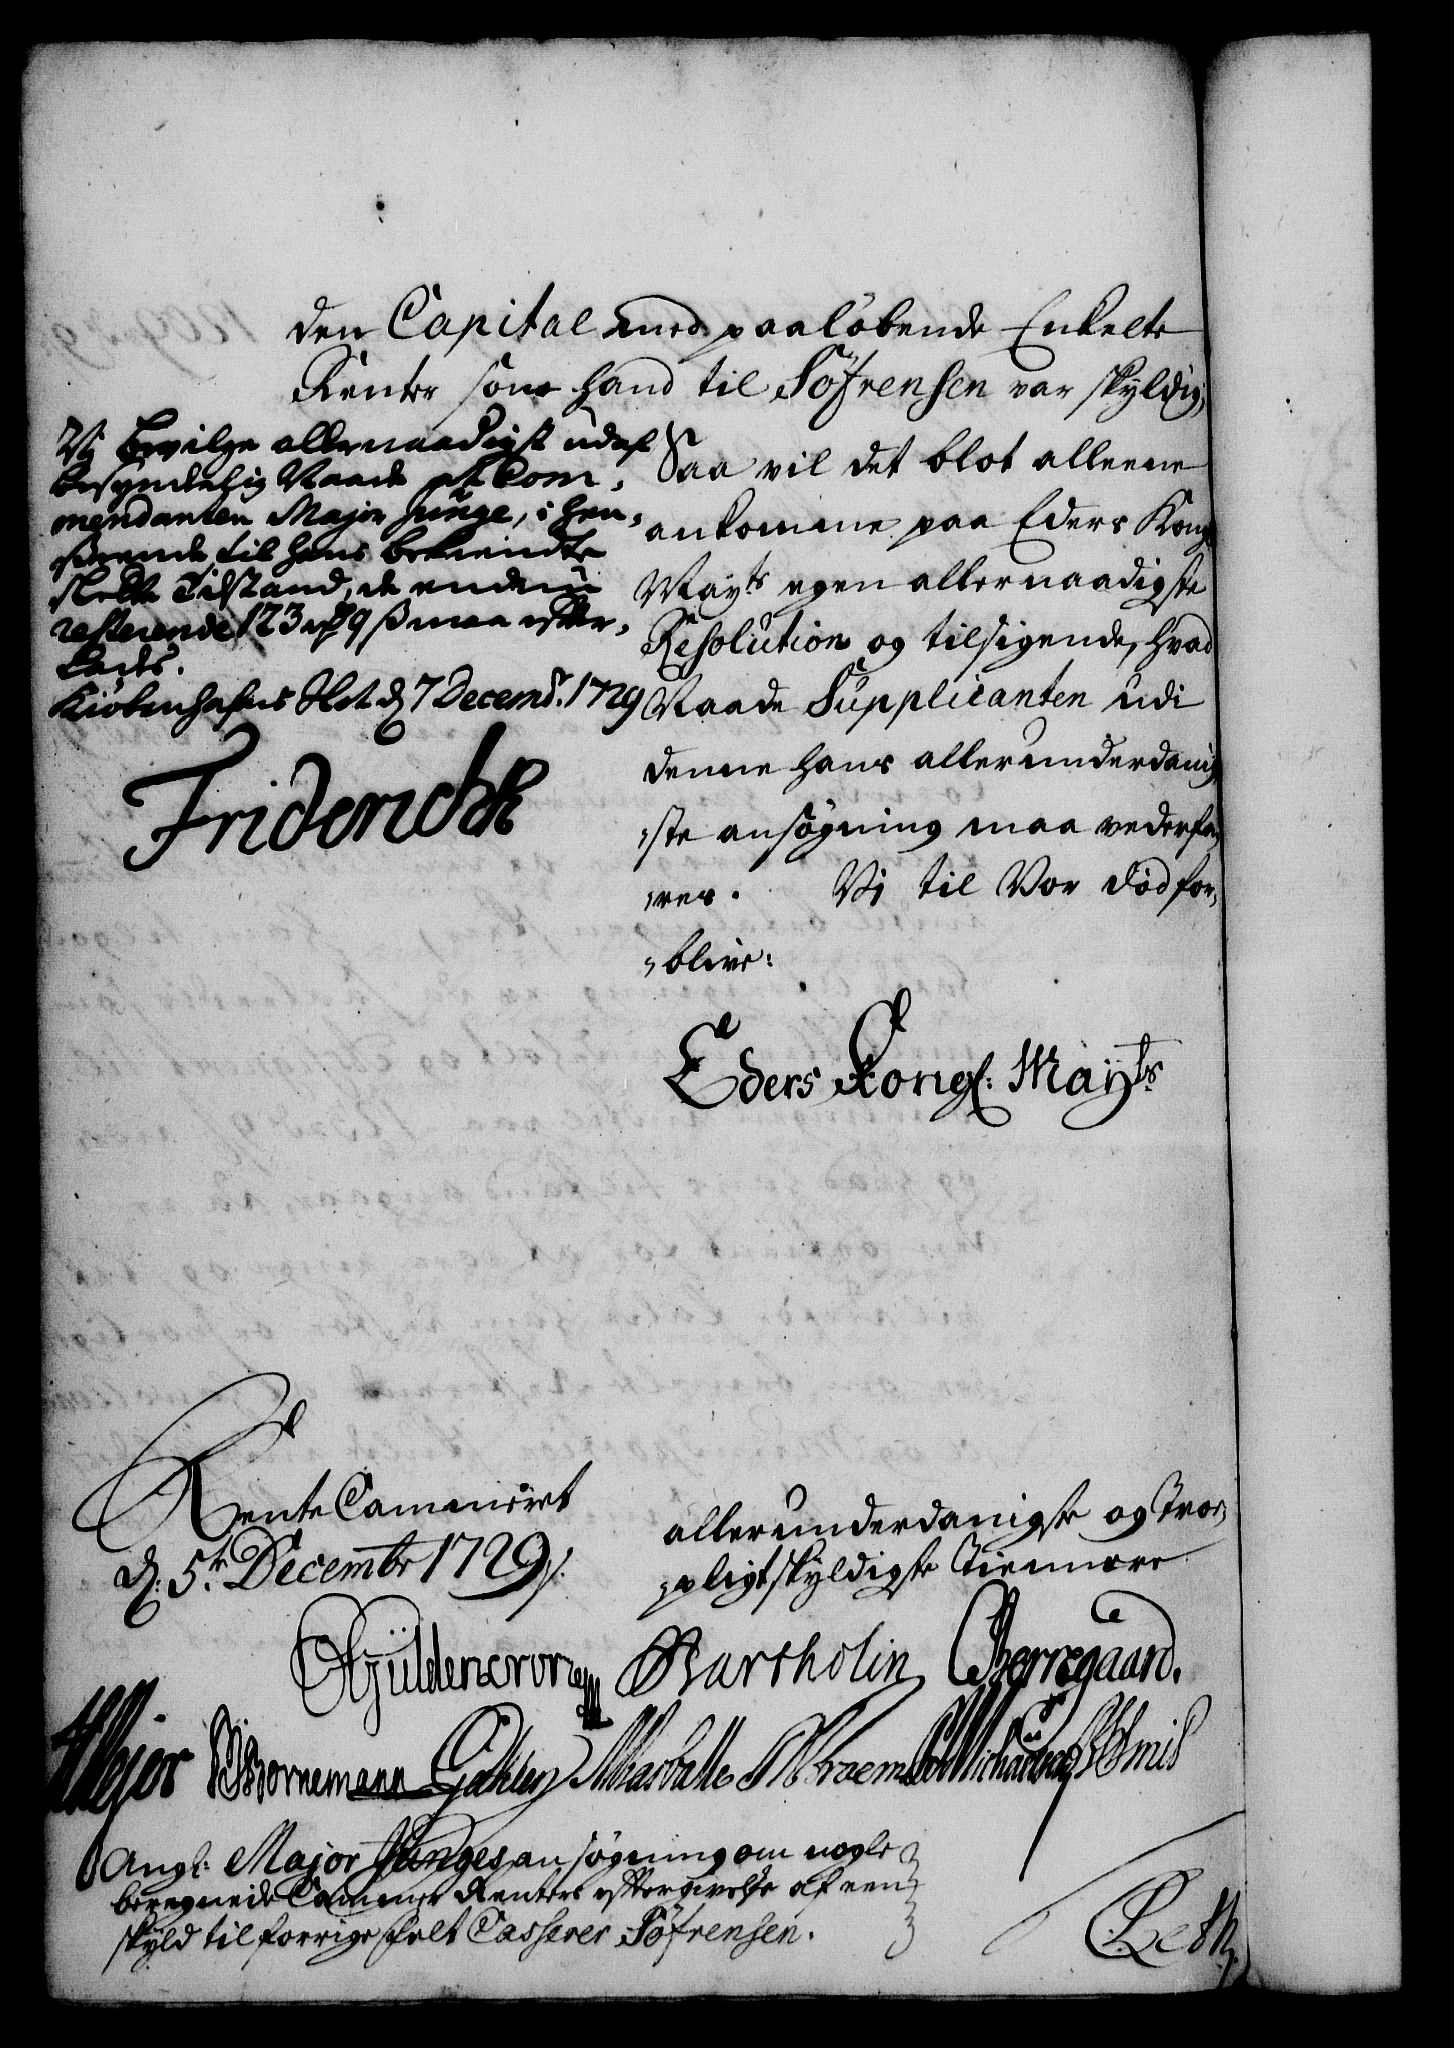 den Capital med paaløbende Enkelte
Renter som hand til Söfrensen var skyldig;
Vj bevilge allernaadigst udaf
besynderlig Naade at Com-
mendanten Major Junge, i hen-
seende til hans bekiendte
slette Tilstand, de endnu
resterende 123 rdr 9 ß maa efter-
lades.
Kiöbenhafns Slot d 7 Decemr. 1729
Friderich R
Saa vil det blot alleene
ankomme paa Eders Kongl.
Mayts egen allernaadigste
Resolution og tilsigende, hvad
Naade Supplicanten udi
denne hans allerunderdanig-
ste ansøgning maa vederfa-
res. Vj til Vor død for-
blive:
Eders Kongl: Mayts
Rente Cammeret
d: 5te Decembr 1729
allerunderdanigste og Troe-
pligtskyldigste Tienere
Güldencrone
Bartholin
Berregaard.
Bornemann
Angl: Major Junges ansøgning om nogle
beregnede Cammer Renters eftergivelse af een
skyld til forrige felt Casserer Söfrensen.